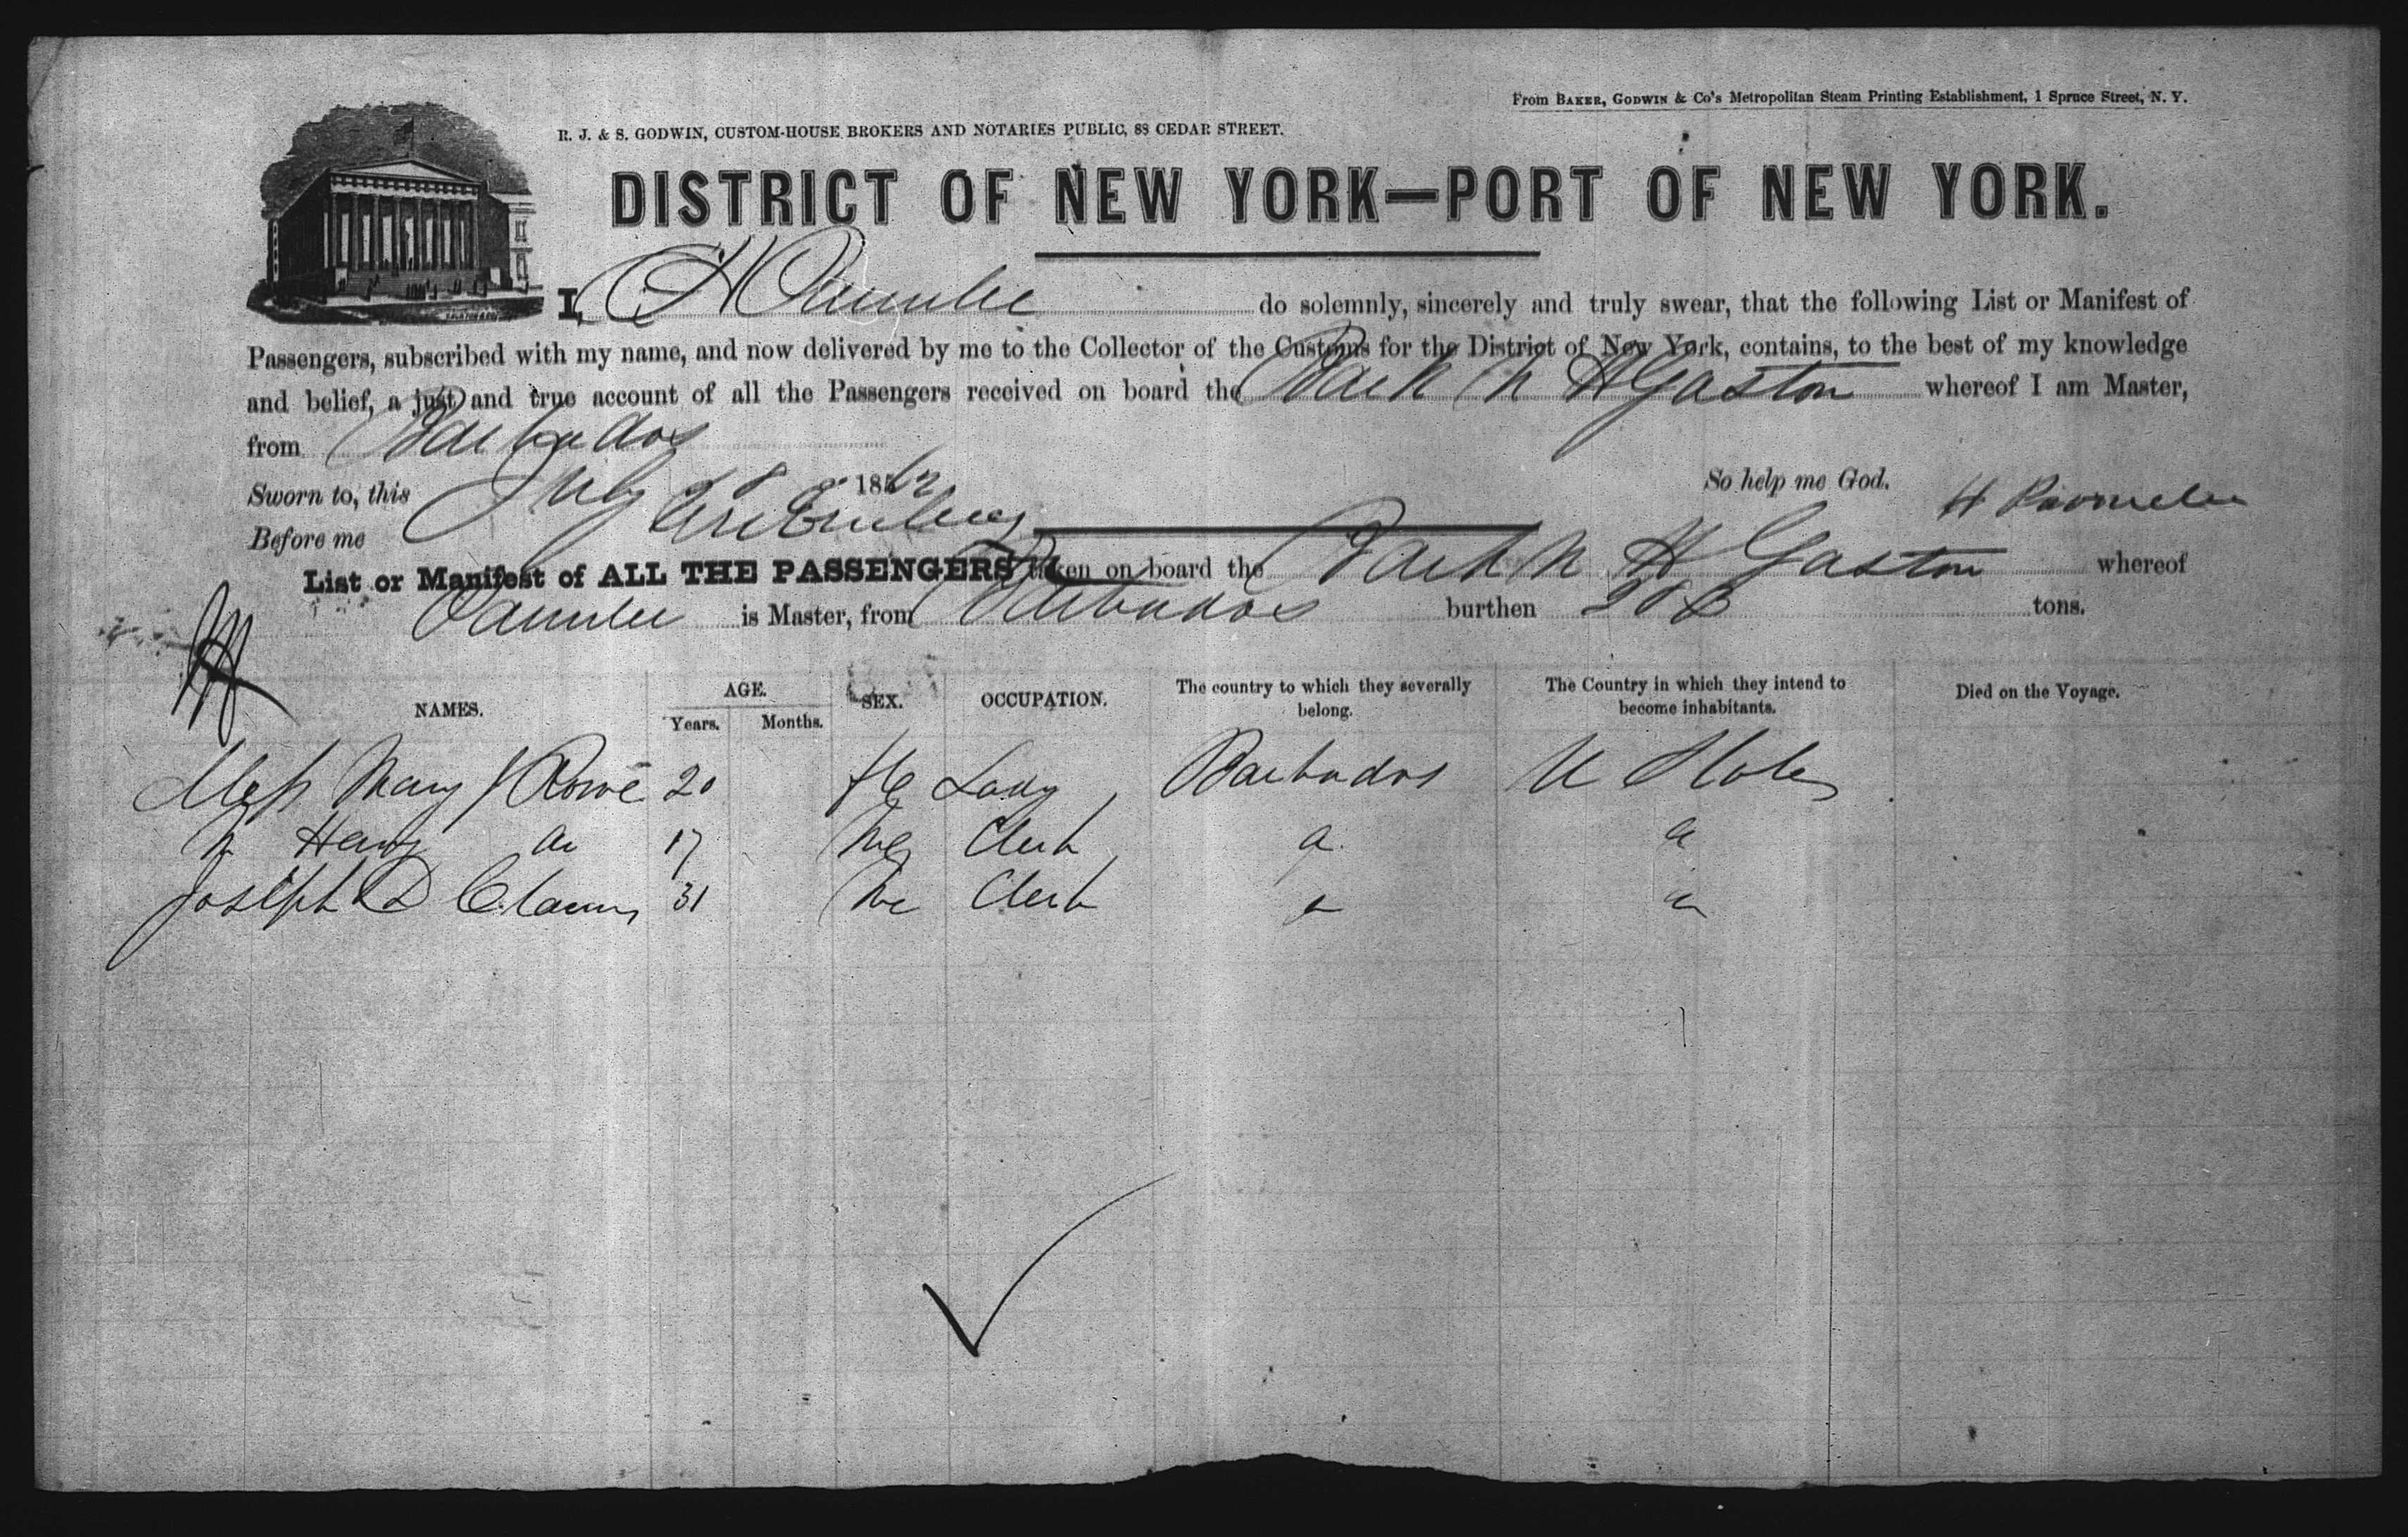 From BAKER, GODWIN & Co's Metropolitan Steam Printing Establishment, 1 Spruce Street, N. Y.
R. J. & S. GODWIN, CUSTOM-HOUSE BROKERS AND NOTARIES PUBLIC, 88 CEDAR STREET.
DISTRICT OF NEW YORK—PORT OF NEW YORK.
I, H Parmelee do solemnly, sincerely and truly swear, that the following List or Manifest of
Passengers, subscribed with my name, and now delivered by me to the Collector of the Customs for the District of New York, contains, to the best of my knowledge
and belief, a just and true account of all the Passengers received on board the Bark N H Gaston whereof I am Master,
from Barbados
Sworn to, this July 28 1862 So help me God. H Parmelee
Before me
List or Manifest of ALL THE PASSENGERS taken on board the Bark N H Gaston whereof
Parmelee is Master, from Barbados burthen tons.
NAMES. AGE. Years. Months. SEX. OCCUPATION. The country to which they severally belong. The Country in which they intend to become inhabitants. Died on the Voyage.
Miss Mary J Rowe 20 fe Lady Barbados U States
Henry 17 Me Clerk
Joseph D 31 Me Clerk